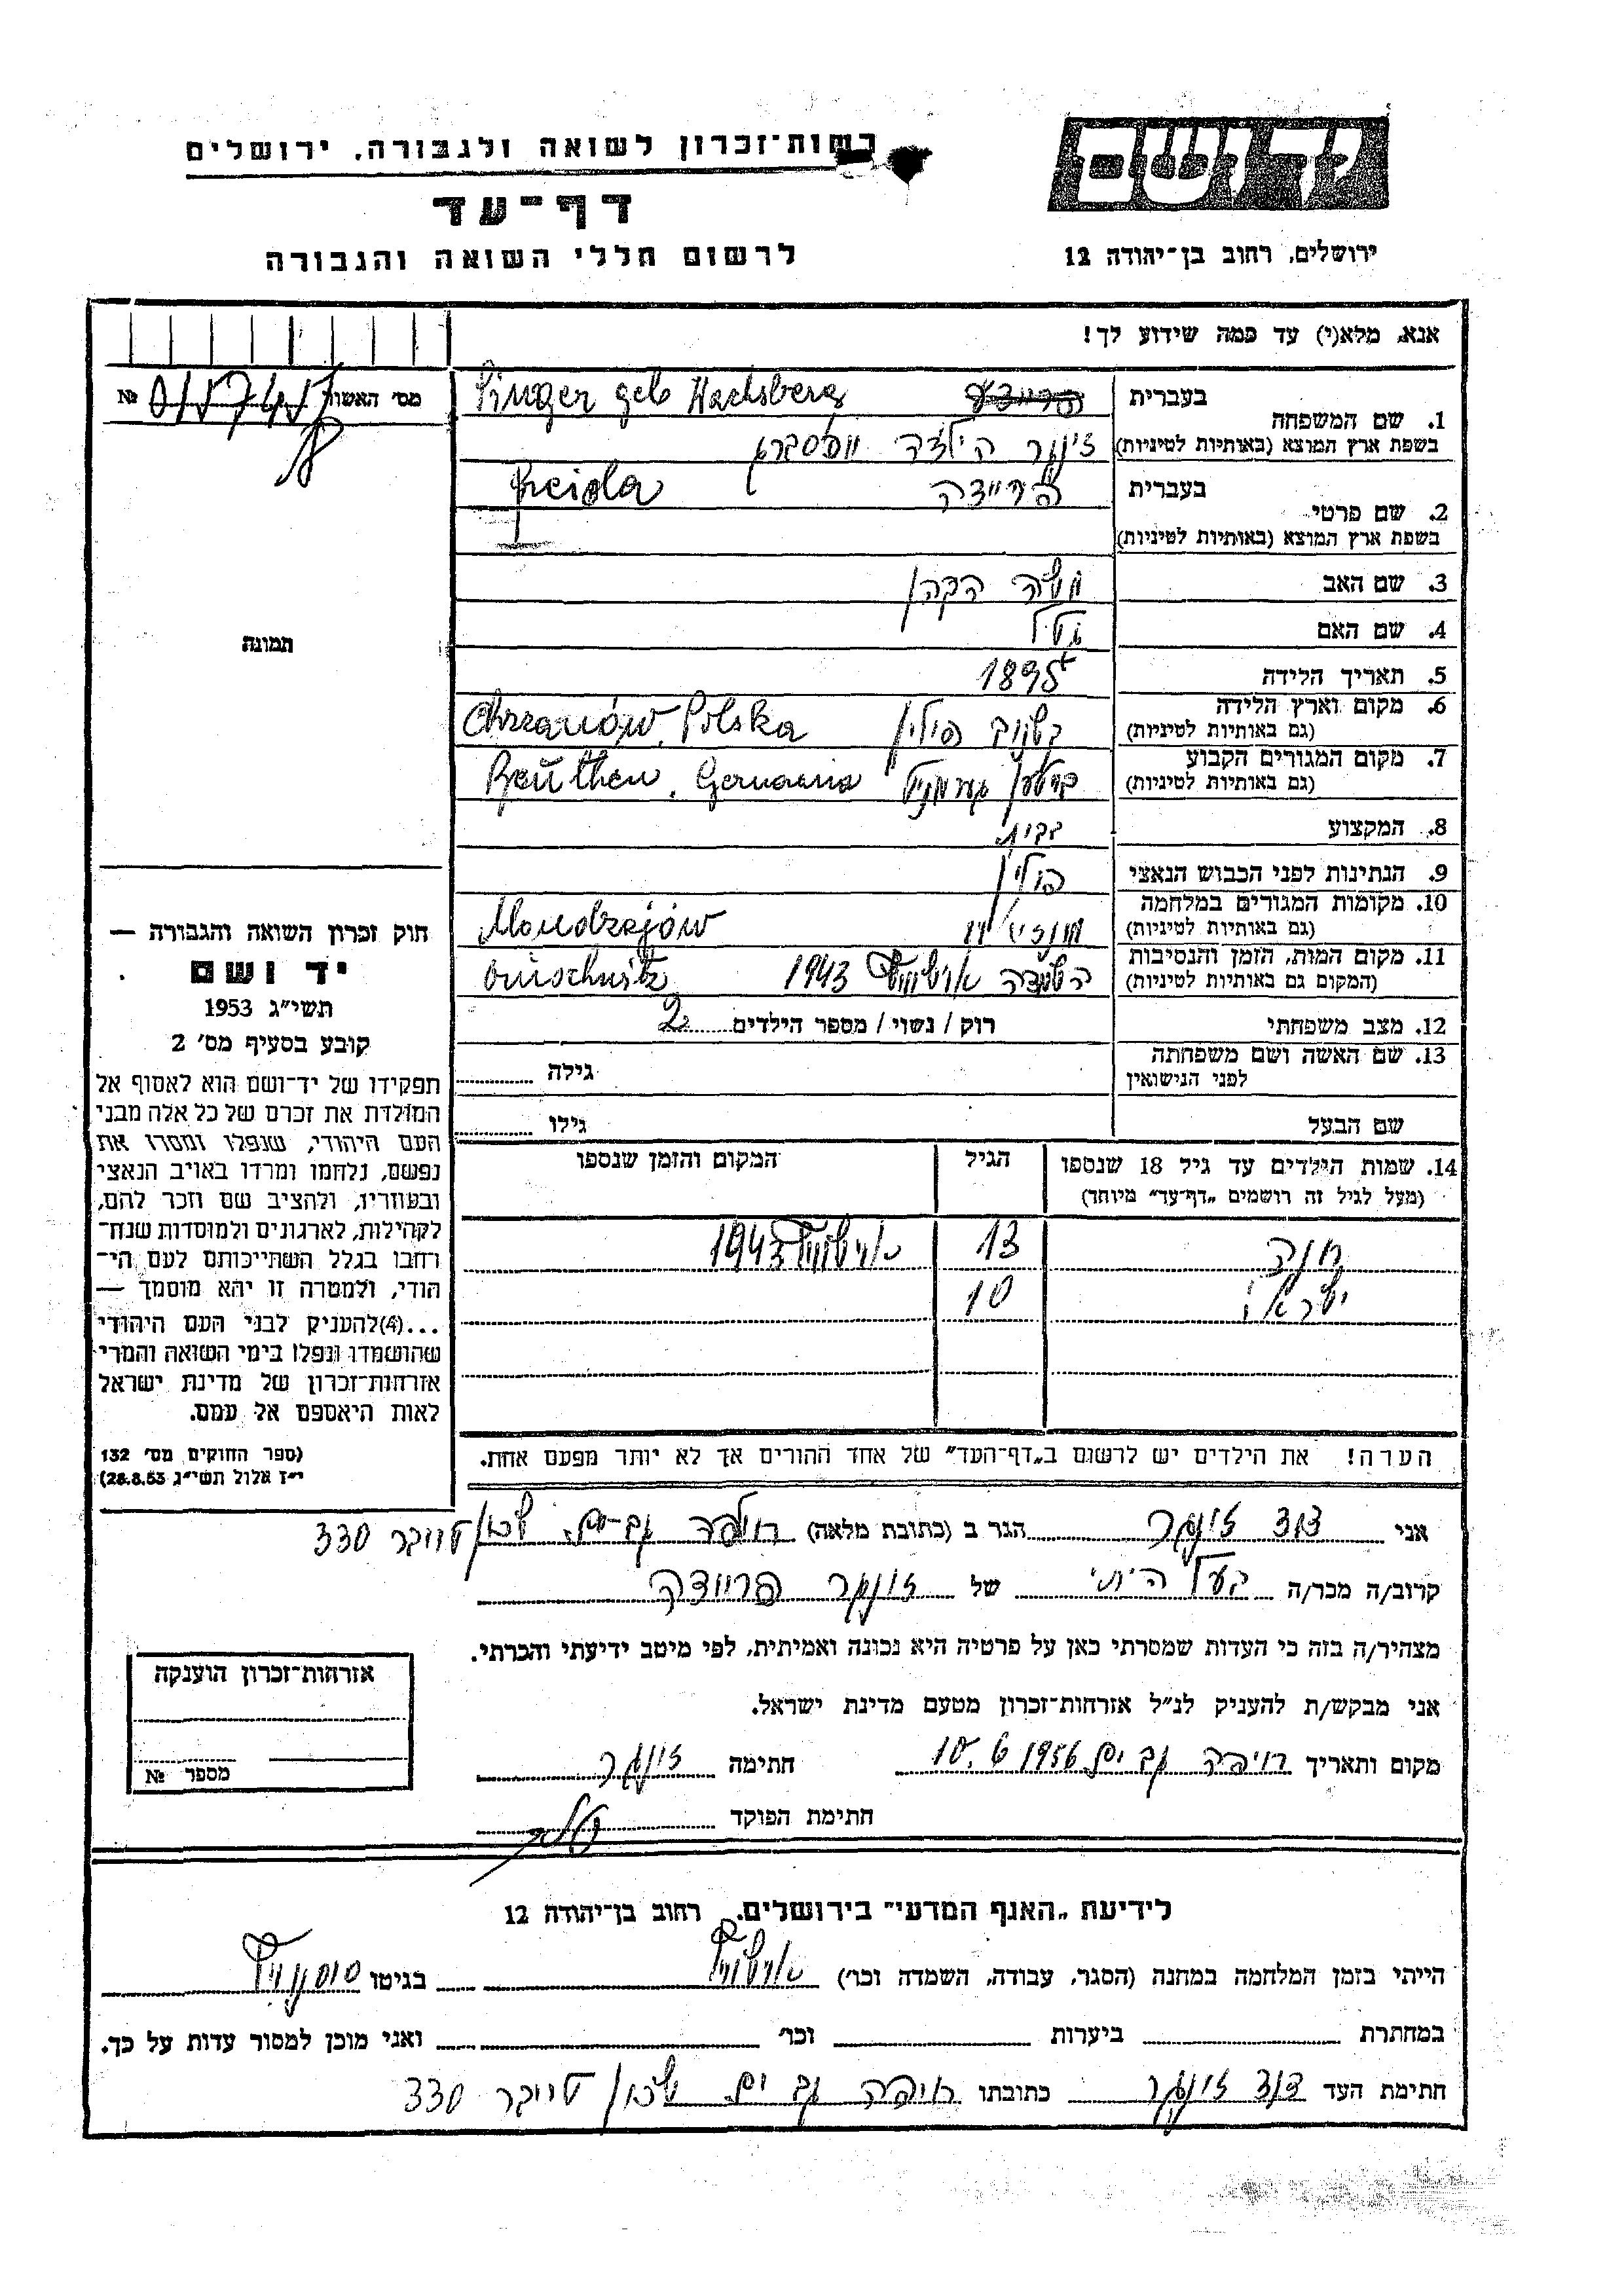 רשות־זכרון לשואה ולגבורה, ירושלים
דף־עד
לרשום חללי השואה והגבורה
יד ושם
ירושלים, רחוב בן־יהודה 12
אנא, מלא(י) עד כמה שידוע לך!
מס' האשור №
1. שם המשפחה בעברית
Singer geb Wachsberg
בשפת ארץ המוצא (באותיות לטיניות) זינגר הילדה
2. שם פרטי בעברית פריידה Freida
בשפת ארץ המוצא (באותיות לטיניות)
3. שם האב משה הכהן
4. שם האם
5. תאריך הלידה 1895
6. מקום וארץ הלידה פולין Chrzanów, Polska
(גם באותיות לטיניות)
7. מקום המגורים הקבוע Beuthen, Germania
(גם באותיות לטיניות)
8. המקצוע
9. הנתינות לפני הכבוש הנאצי פולין
10. מקומות המגורים במלחמה
(גם באותיות לטיניות)
11. מקום המות, הזמן והנסיבות השמדה אוישוויץ 1943
(המקום גם באותיות לטיניות)
12. מצב משפחתי רוק / נשוי / מספר הילדים 2
13. שם האשה ושם משפחתה
לפני הנישואין גילה
שם הבעל גילו
14. שמות הילדים עד גיל 18 שנספו הגיל המקום והזמן שנספו
(מעל לגיל זה רושמים „דף־עד" מיוחד)
חנה 13 אוישוויץ 1943
ישראל 10
הערה! את הילדים יש לרשום ב„דף־העד" של אחד ההורים אך לא יותר מפעם אחת.
תמונה
חוק זכרון השואה והגבורה —
יד ושם
תשי"ג 1953
קובע בסעיף מס' 2
תפקידו של יד־ושם הוא לאסוף אל
המולדת את זכרם של כל אלה מבני
העם היהודי, שנפלו ומסרו את
נפשם, נלחמו ומרדו באויב הנאצי
ובעוזריו, ולהציב שם וזכר להם,
לקהילות, לארגונים ולמוסדות שנח־
רבו בגלל השתייכותם לעם הי־
הודי, ולמטרה זו יהא מוסמך —
...(4) להעניק לבני העם היהודי
שהושמדו ונפלו בימי השואה והמרי
אזרחות־זכרון של מדינת ישראל
לאות היאספם אל עמם.
(ספר החוקים מס' 132
י"ז אלול תשי"ג 28.8.53)
אני דוד זינגר הגר ב (כתובת מלאה) חיפה שכון 330
קרוב/ה מכר/ה בעל של זינגר פריידה
מצהיר/ה בזה כי העדות שמסרתי כאן על פרטיה היא נכונה ואמיתית, לפי מיטב ידיעתי והכרתי.
אני מבקש/ת להעניק לנ"ל אזרחות־זכרון מטעם מדינת ישראל.
מקום ותאריך חיפה 10.6.1956 חתימה זינגר
חתימת הפוקד
אזרחות־זכרון הוענקה
מספר №
לידיעת „האגף המדעי" בירושלים, רחוב בן־יהודה 12
הייתי בזמן המלחמה במחנה (הסגר, עבודה, השמדה וכו') אוישוויץ בגיטו סוסנוויץ
במחתרת ביערות וכו' ואני מוכן למסור עדות על כך.
חתימת העד דוד זינגר כתובתו חיפה שכון 330